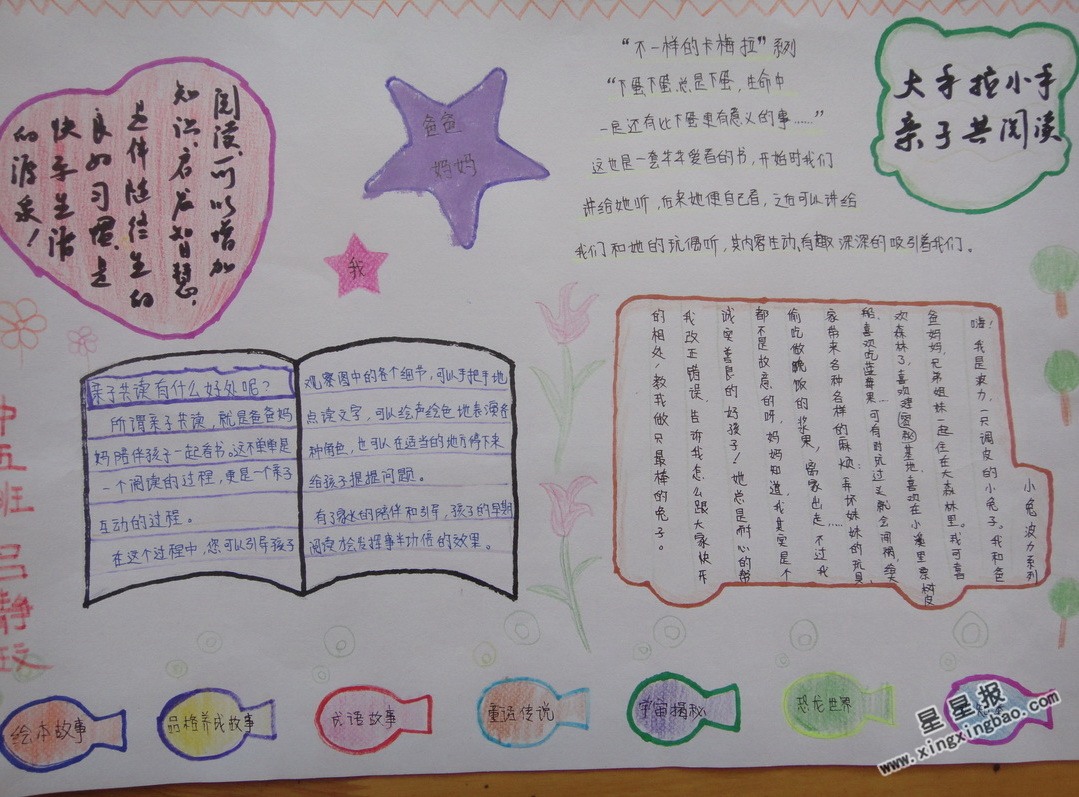 大手拉小手
亲子共阅读
阅读,可以增加
知识,启发智慧,
是伴随终生的
良好习惯,是
快乐生活
的源泉！
爸爸
妈妈
我
“不一样的卡梅拉”系列
“下蛋下蛋总是下蛋，生命中
一定还有比下蛋更有意义的事……”
这也是一套牛牛爱看的书，开始时我们
讲给她听，后来她便自己看，之后可以讲给
我们和她的玩偶听，其内容生动有趣深深的吸引着我们。
亲子共读有什么好处呢？
所谓亲子共读，就是爸爸妈
妈陪伴孩子一起看书。这不单单是
一个阅读的过程，更是一个亲子
互动的过程。
在这个过程中，您可以引导孩子
观察图中的各个细节，可以手把手地
点读文字，可以绘声绘色地表演各
种角色，也可以在适当的地方停下来
给孩子提提问题。
有了家长的陪伴和引导，孩子的早期
阅读才会发挥事半功倍的效果。
小兔波力系列
嗨！我是波力，一只调皮的小兔子。我和爸
爸妈妈，兄弟姐妹一起住在大森林里。我可喜
欢森林了，喜欢秘基地，喜欢在小溪里票树皮
船、喜欢吃蓝莓果……可有时玩过头就会闯祸，给大
家带来各种各样的麻烦：弄坏妹妹的玩具，
偷吃做晚饭的浆果，离家出走……不过我
都不是故意的呀，妈妈知道，我真实是个
诚实善良的好孩子！她总是耐心的帮
我改正错误，告诉我怎么跟大家快乐
的相处，教我做只最棒的兔子。
中五班 吕静
绘本故事
品格养成故事
成语故事
童话传说
宇宙揭秘
恐龙世界
星星报
www.xingxingbao.com